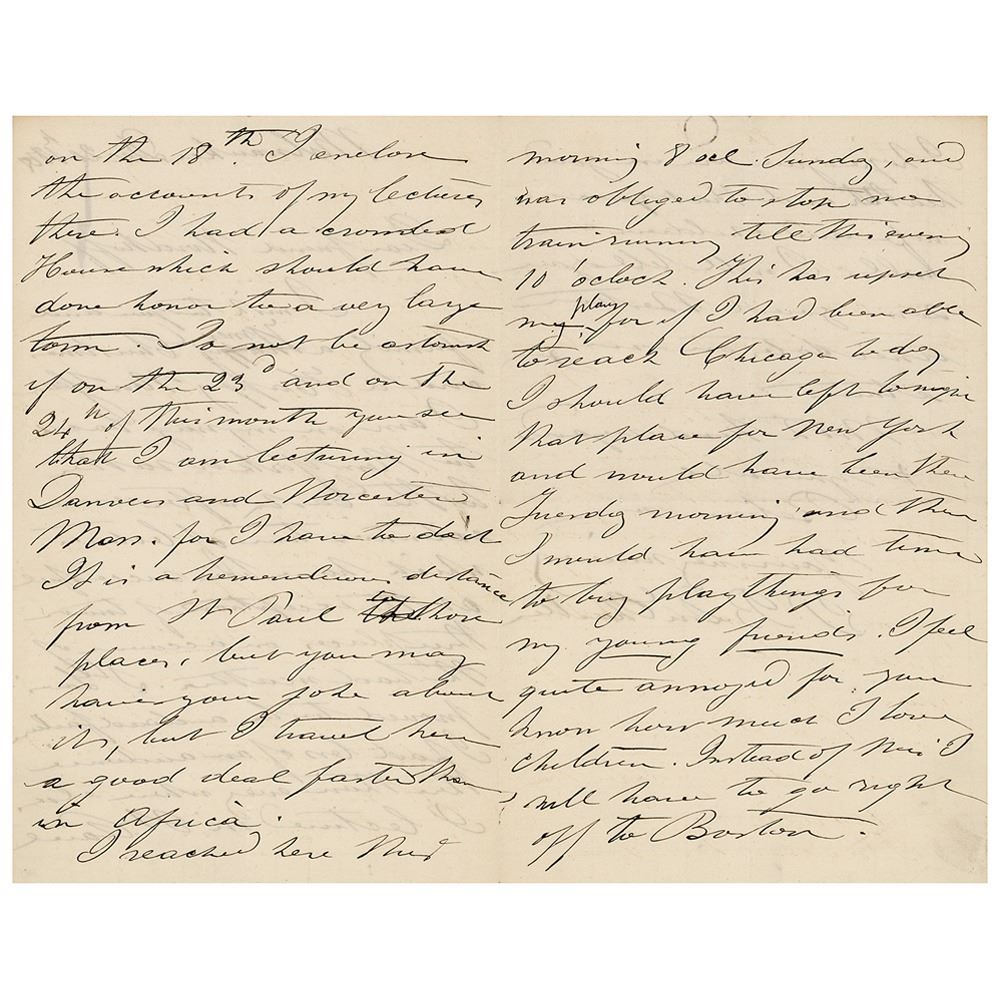 on the 18th. I enclose
the accounts of my lectures
there. I had a crowded
House which should have
done honor to a very large
town. Do not be astonish
if on the 23d and on the
24th of this month you see
that I am lecturing in
Danvers and Worcester
Mass. for I have to do it
It is a tremendious distance
from St Paul to those
places, but you may
have your joke about
it, but I travel here
a good deal faster than
in Africa.
I reached here this
morning 8 ocl Sunday, and
was obliged to stop no
train running till this eveng
10 o'clock. This has upset
my plans for if I had been able
to reach Chicago to day
I should have left to night
that place for New York
and would have been there
Tuesday morning and then
I would have had time
to buy playthings for
my young friends. I feel
quite annoyed for you
know how much I love
children. Instead of this I
will have to go right
off to Boston.